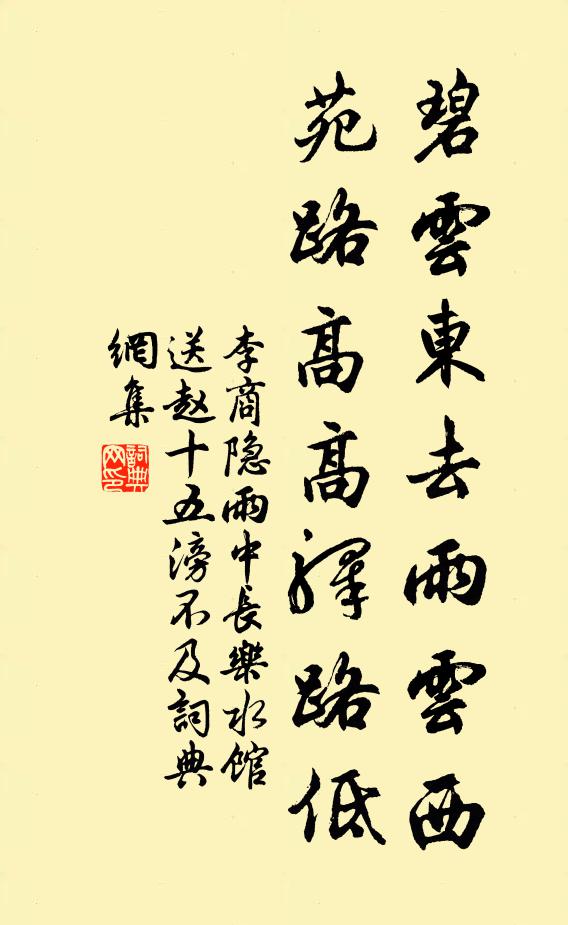 碧雲東去雨雲西
苑路高高驛路低
李商隐雨中長樂水馆
送赵十五滂不及詞典
網集
詞典
网印